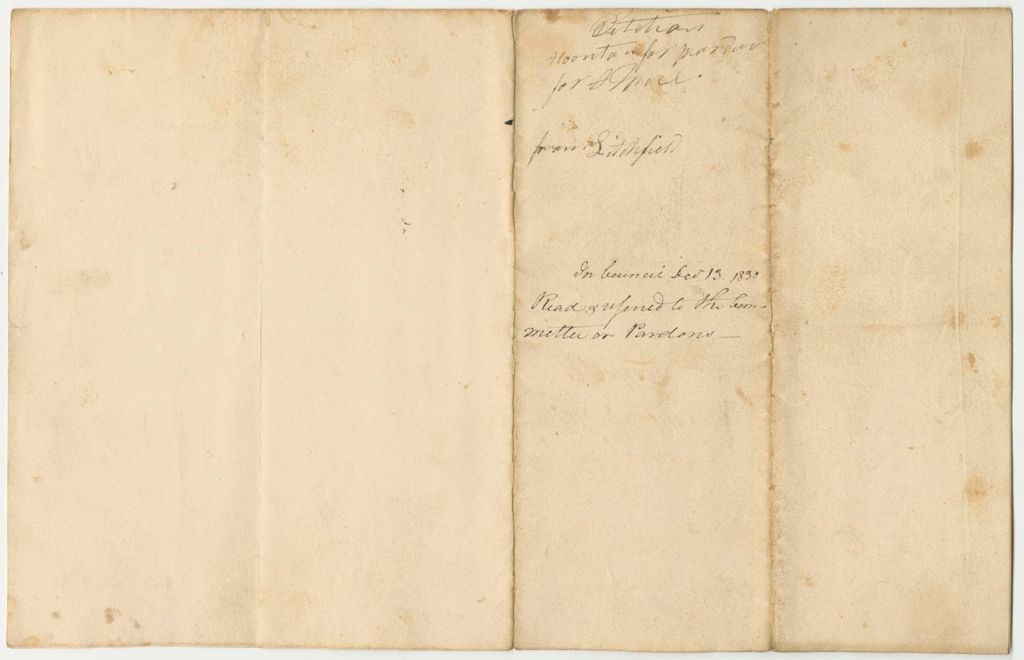 Petition
for pardon
for
from Litchfield
In Council Dec 13. 1830
Read & referred to the Com-
mittee on Pardons—